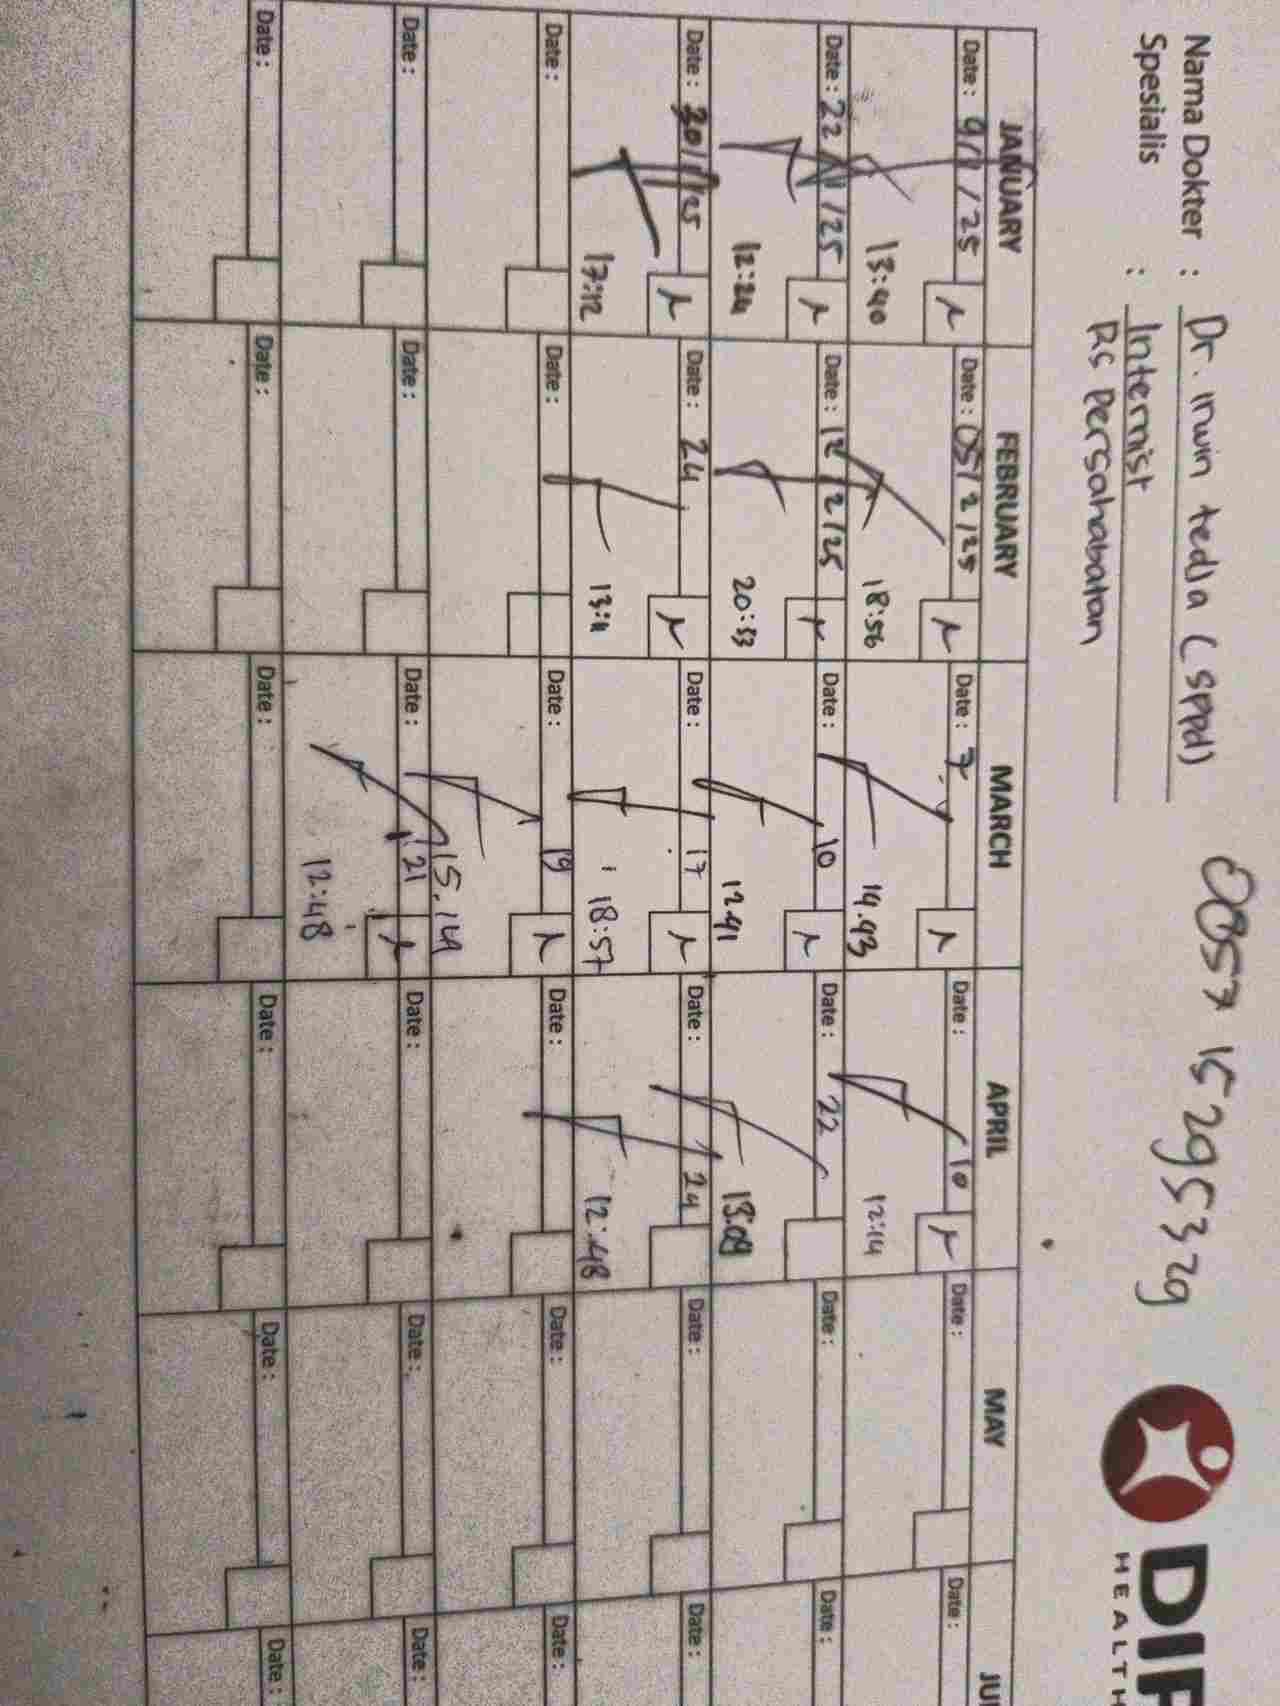 Nama Dokter : Dr. Irwin tedja (sppd) 0857 15295329
Spesialis : Internist
RS Persahabatan
DIP
HEALTH
JANUARY FEBRUARY MARCH APRIL MAY JU
Date : 9/1/25 Date : 05/2/25 Date : 7 Date : 10 Date : Date :
13:40 18:56 14.43 12:14
Date : 22/1/25 Date : 12/2/25 Date : 10 Date : 22 Date : Date :
12:24 20:33 12.41 13:09
Date : 30/1/25 Date : 24 Date : 17 Date : 24 Date : Date :
17:12 13:11 18:57 12:48
Date : Date : Date : 19 Date : Date : Date :
15.14
Date : Date : Date : 21 Date : Date : Date :
12:48
Date : Date : Date : Date : Date : Date :